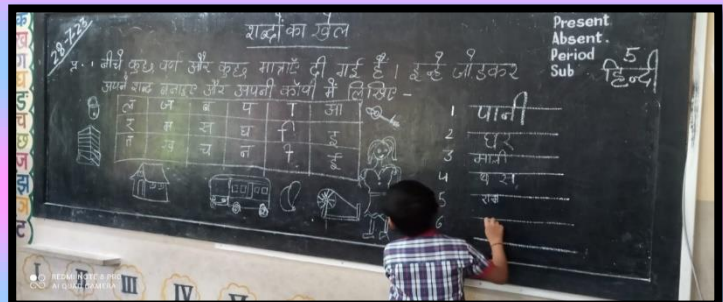 28-7-23
शब्दों का खेल
Present
Absent.
Period 5
Sub हिन्दी
प्र. 1 नीचे कुछ वर्ण और कुछ मात्राएँ दी गई हैं । इन्हें जोड़कर
अपने शब्द बनाइए और अपनी कॉपी में लिखिए -
ल ज ब प ा आ
र म स घ ी इ
त ख च न ि ई
1 पानी
2 घर
3
4
5
6
क
ख
ग
घ
ङ
च
छ
ज
झ
ञ
ट
I
III
IV
REDMI NOTE 8 PRO
AI QUAD CAMERA